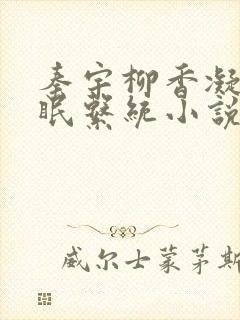 秦宗柳香凝
眠繫统小說
威尔士蒙茅斯